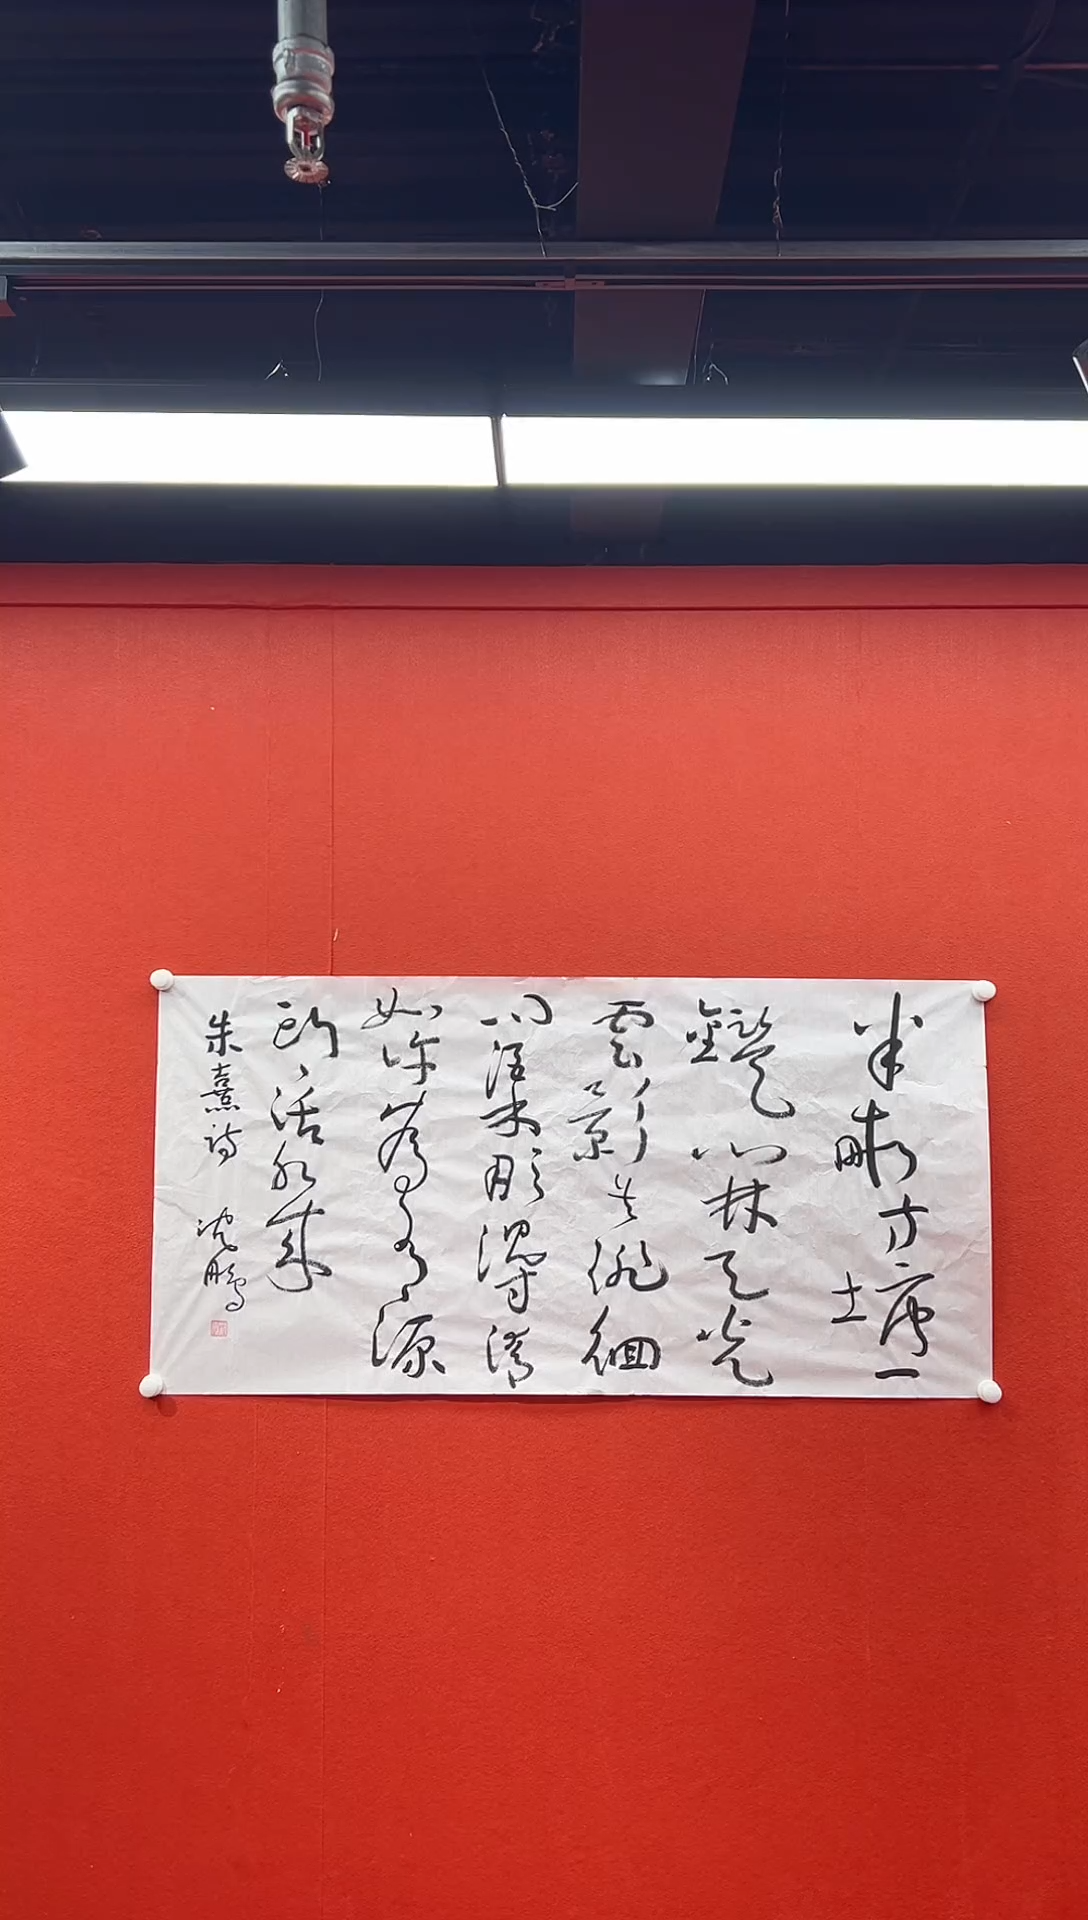 半畝方塘一
鑑開天光
雲影共徘徊
問渠那得清
如許為有源
頭活水來
朱熹詩 沈鵬